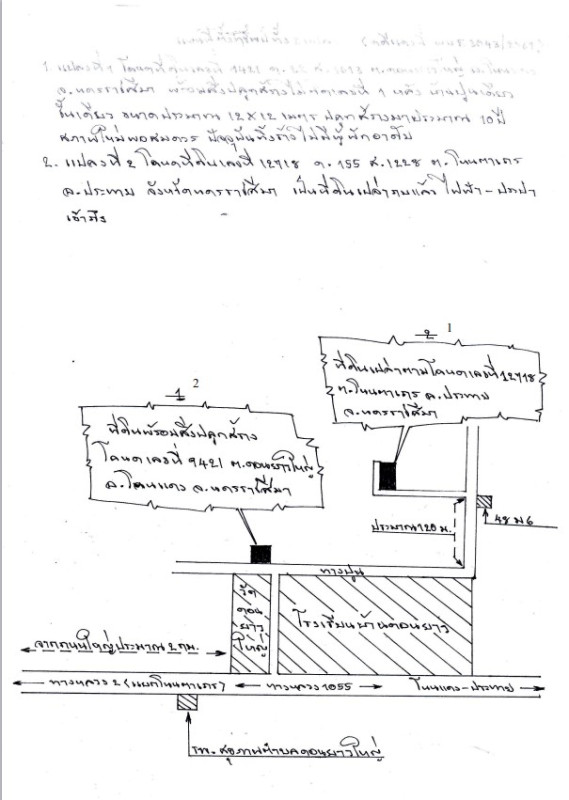 1. แปลงที่ 1 โฉนดที่ดินเลขที่ 9421
จ.นครราชสีมา พร้อมสิ่งปลูกสร้างไม่มีเลขที่ 1 หลัง บ้านปูนเดี่ยว
ชั้นเดียว ขนาดประมาณ 12x12 เมตร ปลูกสร้างมาประมาณ 10 ปี
สภาพใหม่พอสมควร ปัจจุบันทิ้งร้างไม่มีผู้พักอาศัย
2. แปลงที่ 2 โฉนดที่ดินเลขที่ 12718 ล. 155 ส. 1228 ต. โนนตาเถร
อ. ประทาย จังหวัดนครราชสีมา เป็นที่ดินเปล่าถมแล้ว ไฟฟ้า - ปะปา
เข้าถึง
2 1
ที่ดินเปล่าตามโฉนดเลขที่ 12718
ต. โนนตาเถร อ. ประทาย
จ. นครราชสีมา
1 2
ที่ดินพร้อมสิ่งปลูกสร้าง
โฉนดเลขที่ 9421 ต. ดอนยาวใหญ่
อ. โนนแดง จ. นครราชสีมา
ประมาณ 120 ม.
48 ม 6
ทางปูน
วัด
ดอน
ยาว
ใหญ่
โรงเรียนบ้านดอนยาว
จากถนนใหญ่ประมาณ 2 กม.
ทางหลวง 2 (แยกโนนตาเถร)
ทางหลวง 1055
โนนแดง - ประทาย
รพ. สุขภาพตำบลดอนยาวใหญ่